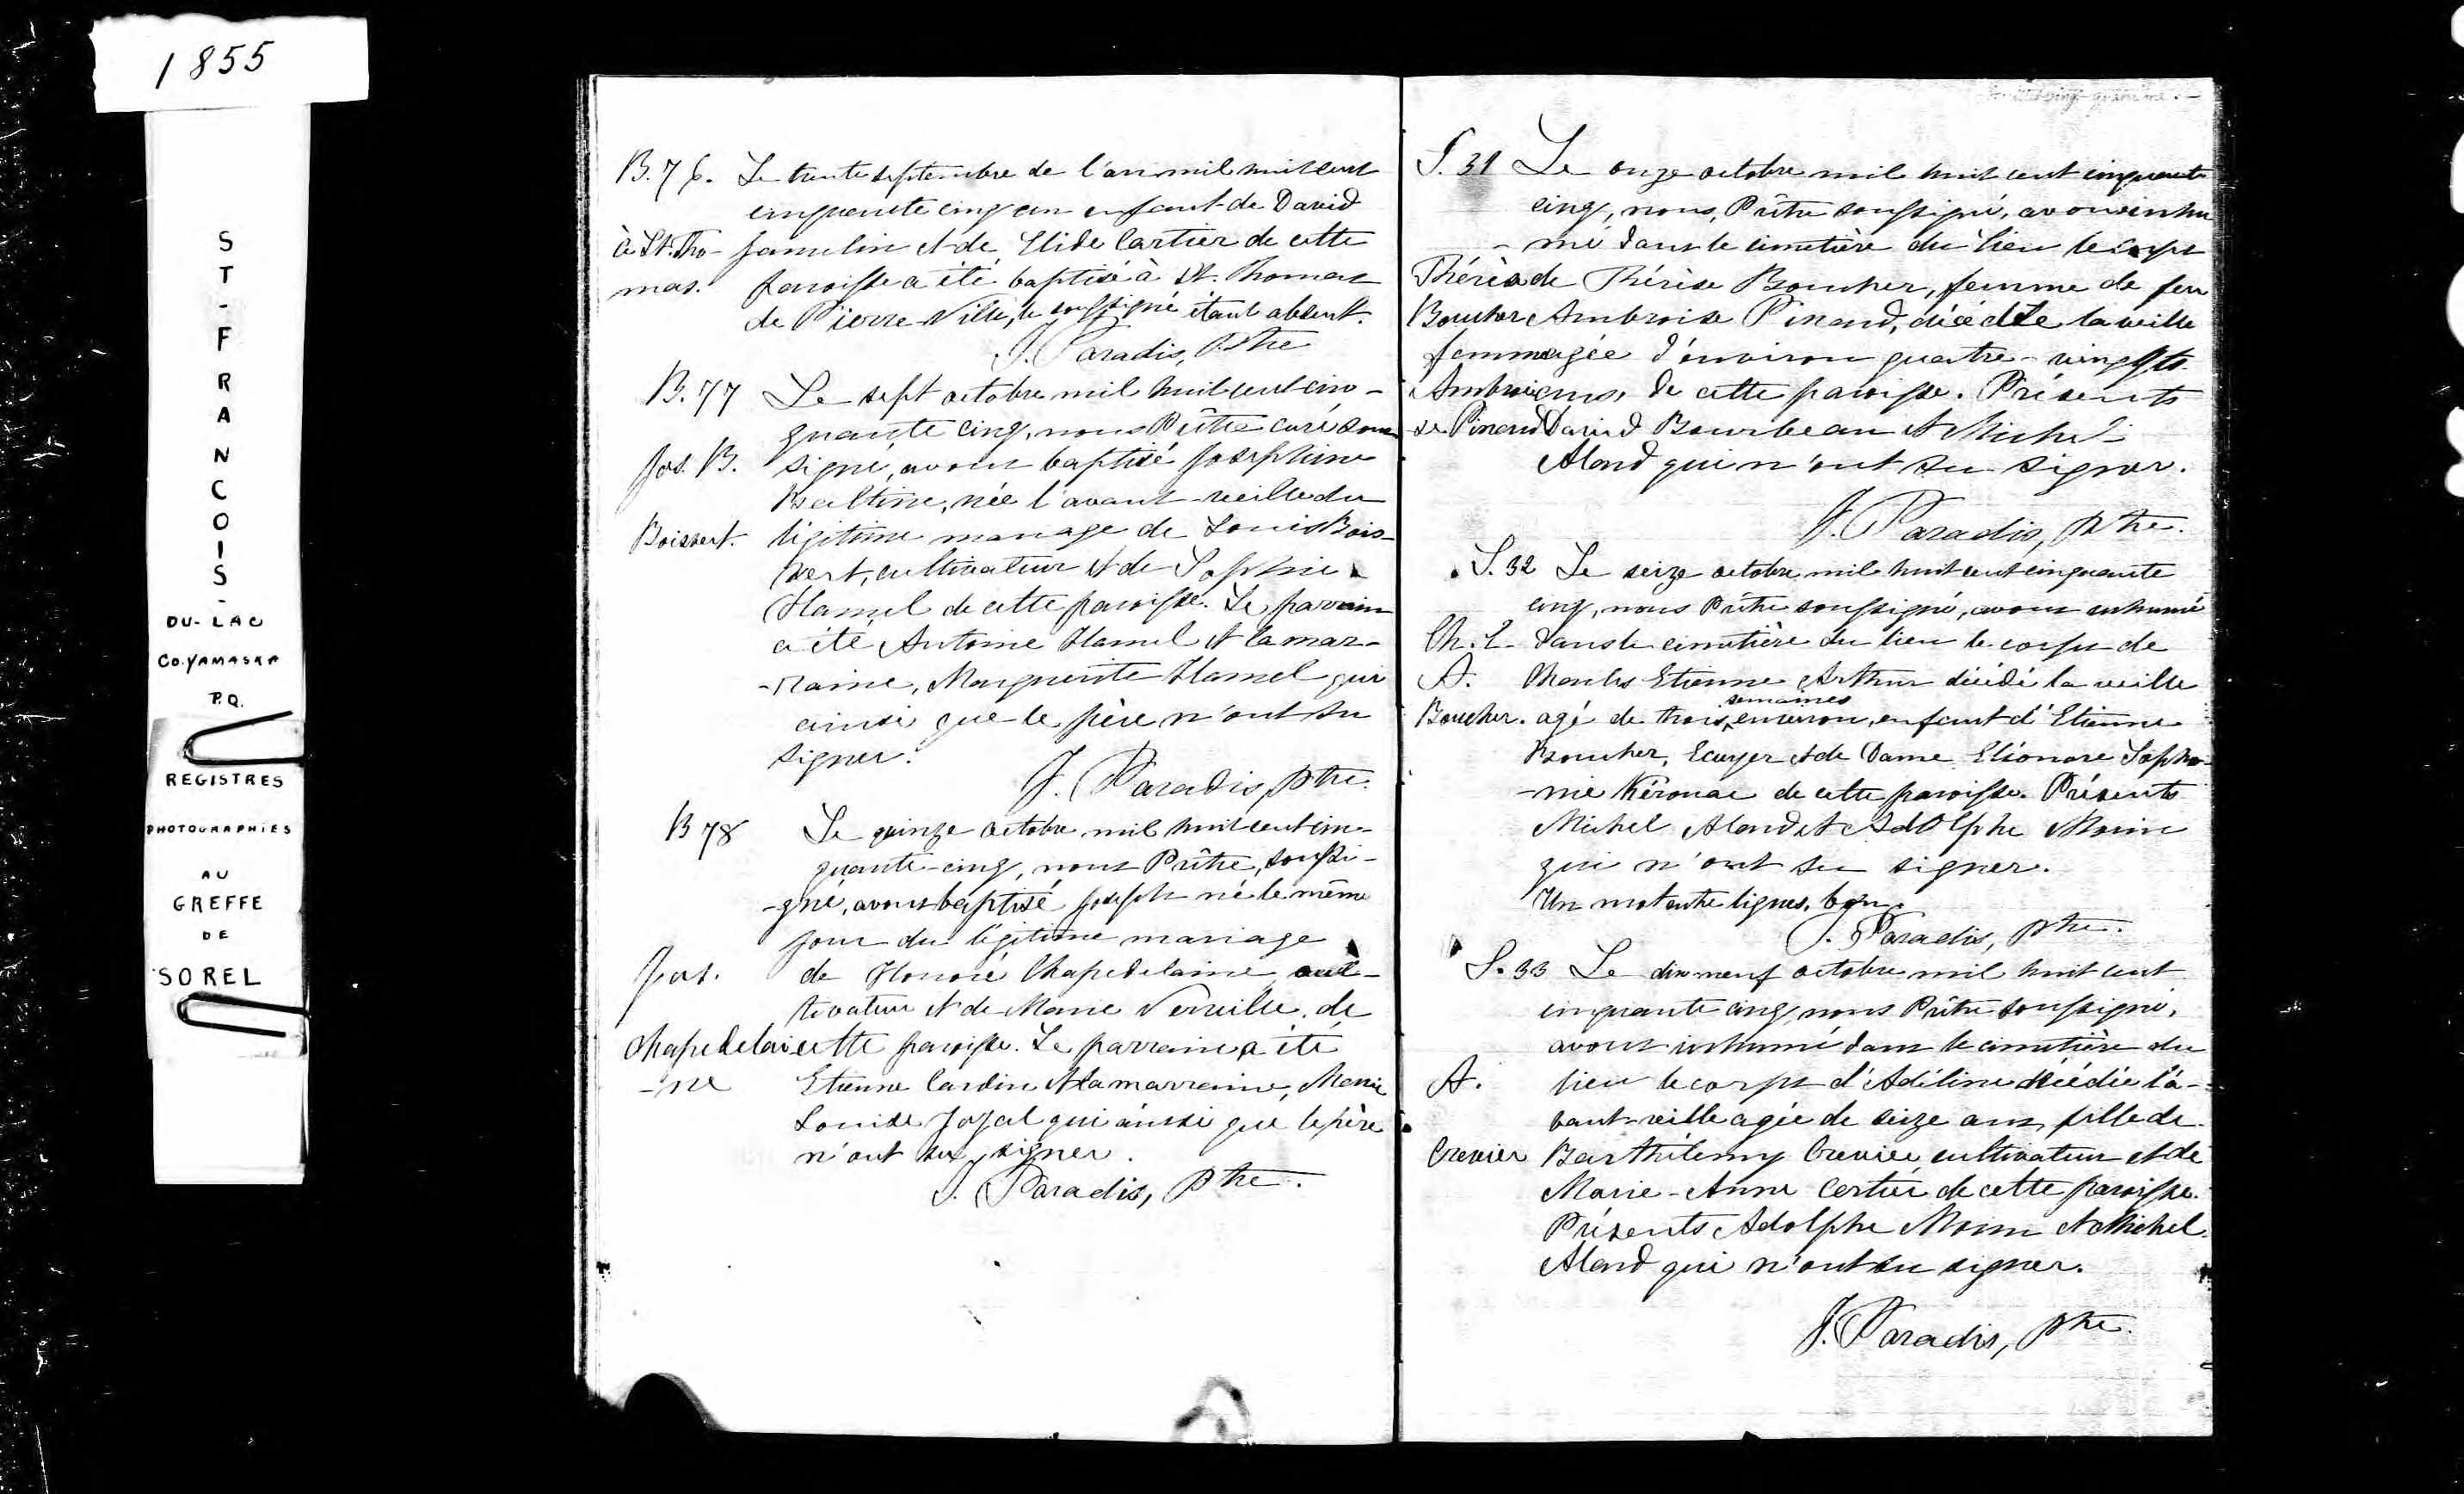 1855
ST-FRANCOIS-
DU-LAC
CO. YAMASKA
P.Q.
REGISTRES
PHOTOGRAPHIES
AU
GREFFE
DE
SOREL
B. 76. Le trente septembre de l'an mil huit cent
cinquante cinq un enfant de David
à St. Tho- Jamelin et de Elide Cartier de cette
mas. paroisse a été baptisé à St. Thomas
de Pierre-Ville, le soussigné étant absent.
J. Paradis, Ptre
B. 77 Le sept octobre mil huit cent cin-
quante cinq, nous Prêtre curé sous
Jos. B. signé, avons baptisé Josephine
née l'avant-veille du
Boisvert. légitime mariage de Louis Bois-
vert, cultivateur et de Sophie
Hamel de cette paroisse. Le parrain
a été Antoine Hamel et la mar-
-raine, Marguerite Hamel qui
ainsi que le père n'ont su
signer.
J. Paradis, ptre.
B 78 Le quinze octobre mil huit cent cin-
quante-cinq, nous Prêtre, soussi-
-gné, avons baptisé Joseph né le même
jour du légitime mariage
Jos. de Honoré Chapedelaine, cul-
tivateur et de Marie Verville de
Chapedelai cette paroisse. Le parrain a été
-ne Etienne Cardin et la marraine, Marie
Louise Joyal qui ainsi que le père
n'ont su signer.
J. Paradis, ptre.
S. 31 Le onze octobre mil huit cent cinquante
cinq, nous, Prêtre soussigné, avons inhu
-mé dans le cimetière du lieu le corps
Thérèse de Thérèse Boucher, femme de feu
Boucher Ambroise Pinard, décédée la veille
femme agée d'environ quatre-vingts
Ambroi ans, de cette paroisse. Présents
se Pinard David Bourbeau et Michel
Alard qui n'ont su signer.
J. Paradis, ptre.
S. 32 Le seize octobre mil huit cent cinquante
cinq, nous Prêtre soussigné, avons inhumé
Ch. E. dans le cimetière du lieu le corps de
A. Charles Etienne Arthur décédé la veille
semaines
Boucher. agé de trois environ, enfant d'Etienne
Boucher, Ecuyer et de Dame Eléonore Sophro-
-nie Kérouac de cette paroisse. Présents
Michel Alard et Adolphe Morin
qui n'ont su signer.
Un mot entre lignes, bon.
J. Paradis, ptre.
S. 33 Le dix neuf octobre mil huit cent
cinquante cinq, nous Prêtre soussigné,
avons inhumé dans le cimetière du
A. lieu le corps d'Adéline décédée l'a-
vant-veille agée de seize ans, fille de
Crevier Barthélemy Crevier, cultivateur et de
Marie-Anne Cartier de cette paroisse.
Présents Adolphe Morin et Michel
Alard qui n'ont su signer.
J. Paradis, ptre.